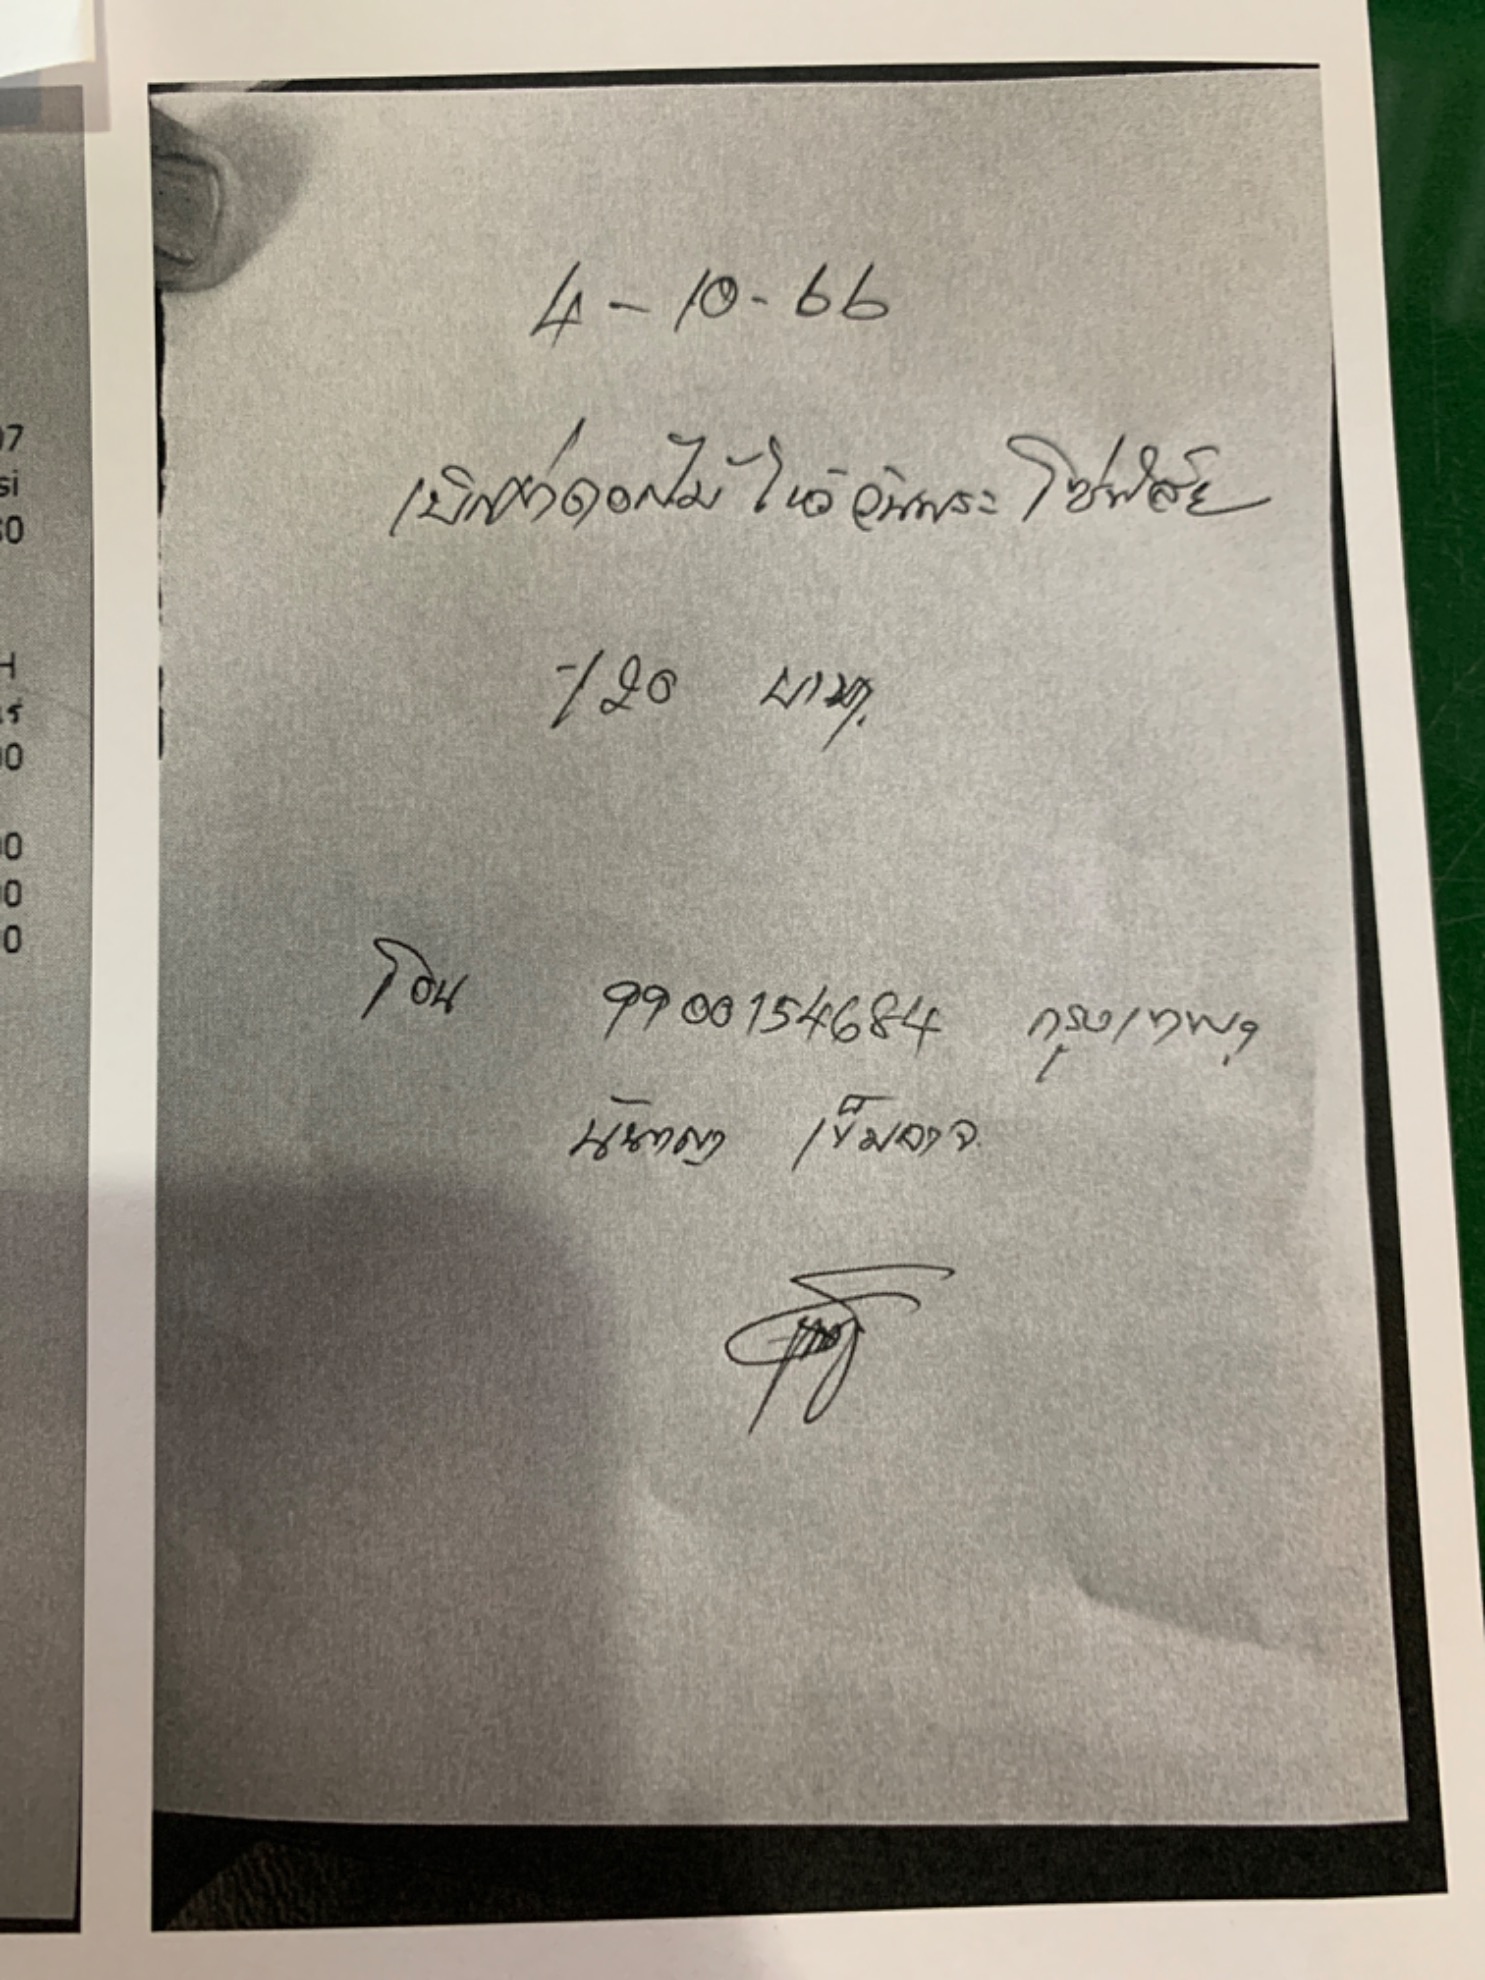 07
si
50
H
าร์
00
00
00
0
4-10-66
เบิกค่าดอกไม้ ไหว้ วันพระ โชว์
-120 บาท.
โอน 9900154684 กรุงเทพฯ
นันทญา เข็มอาจ